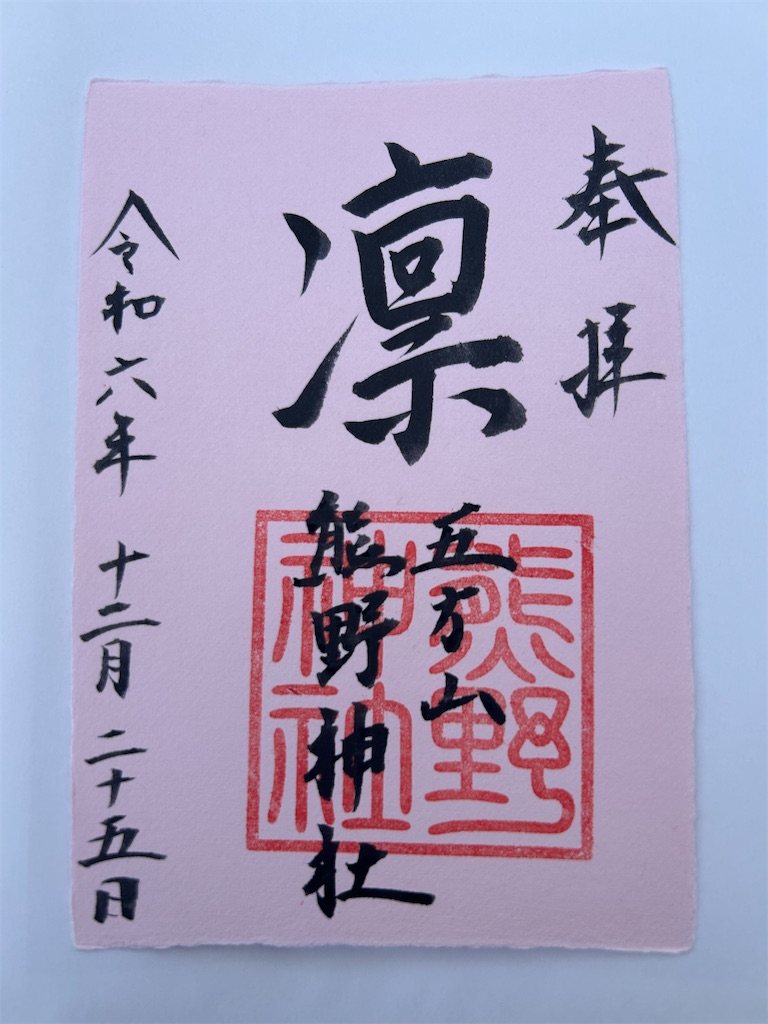 奉拝
凛
五方山
熊野神社
熊野
神社
令和六年 十二月 二十五日